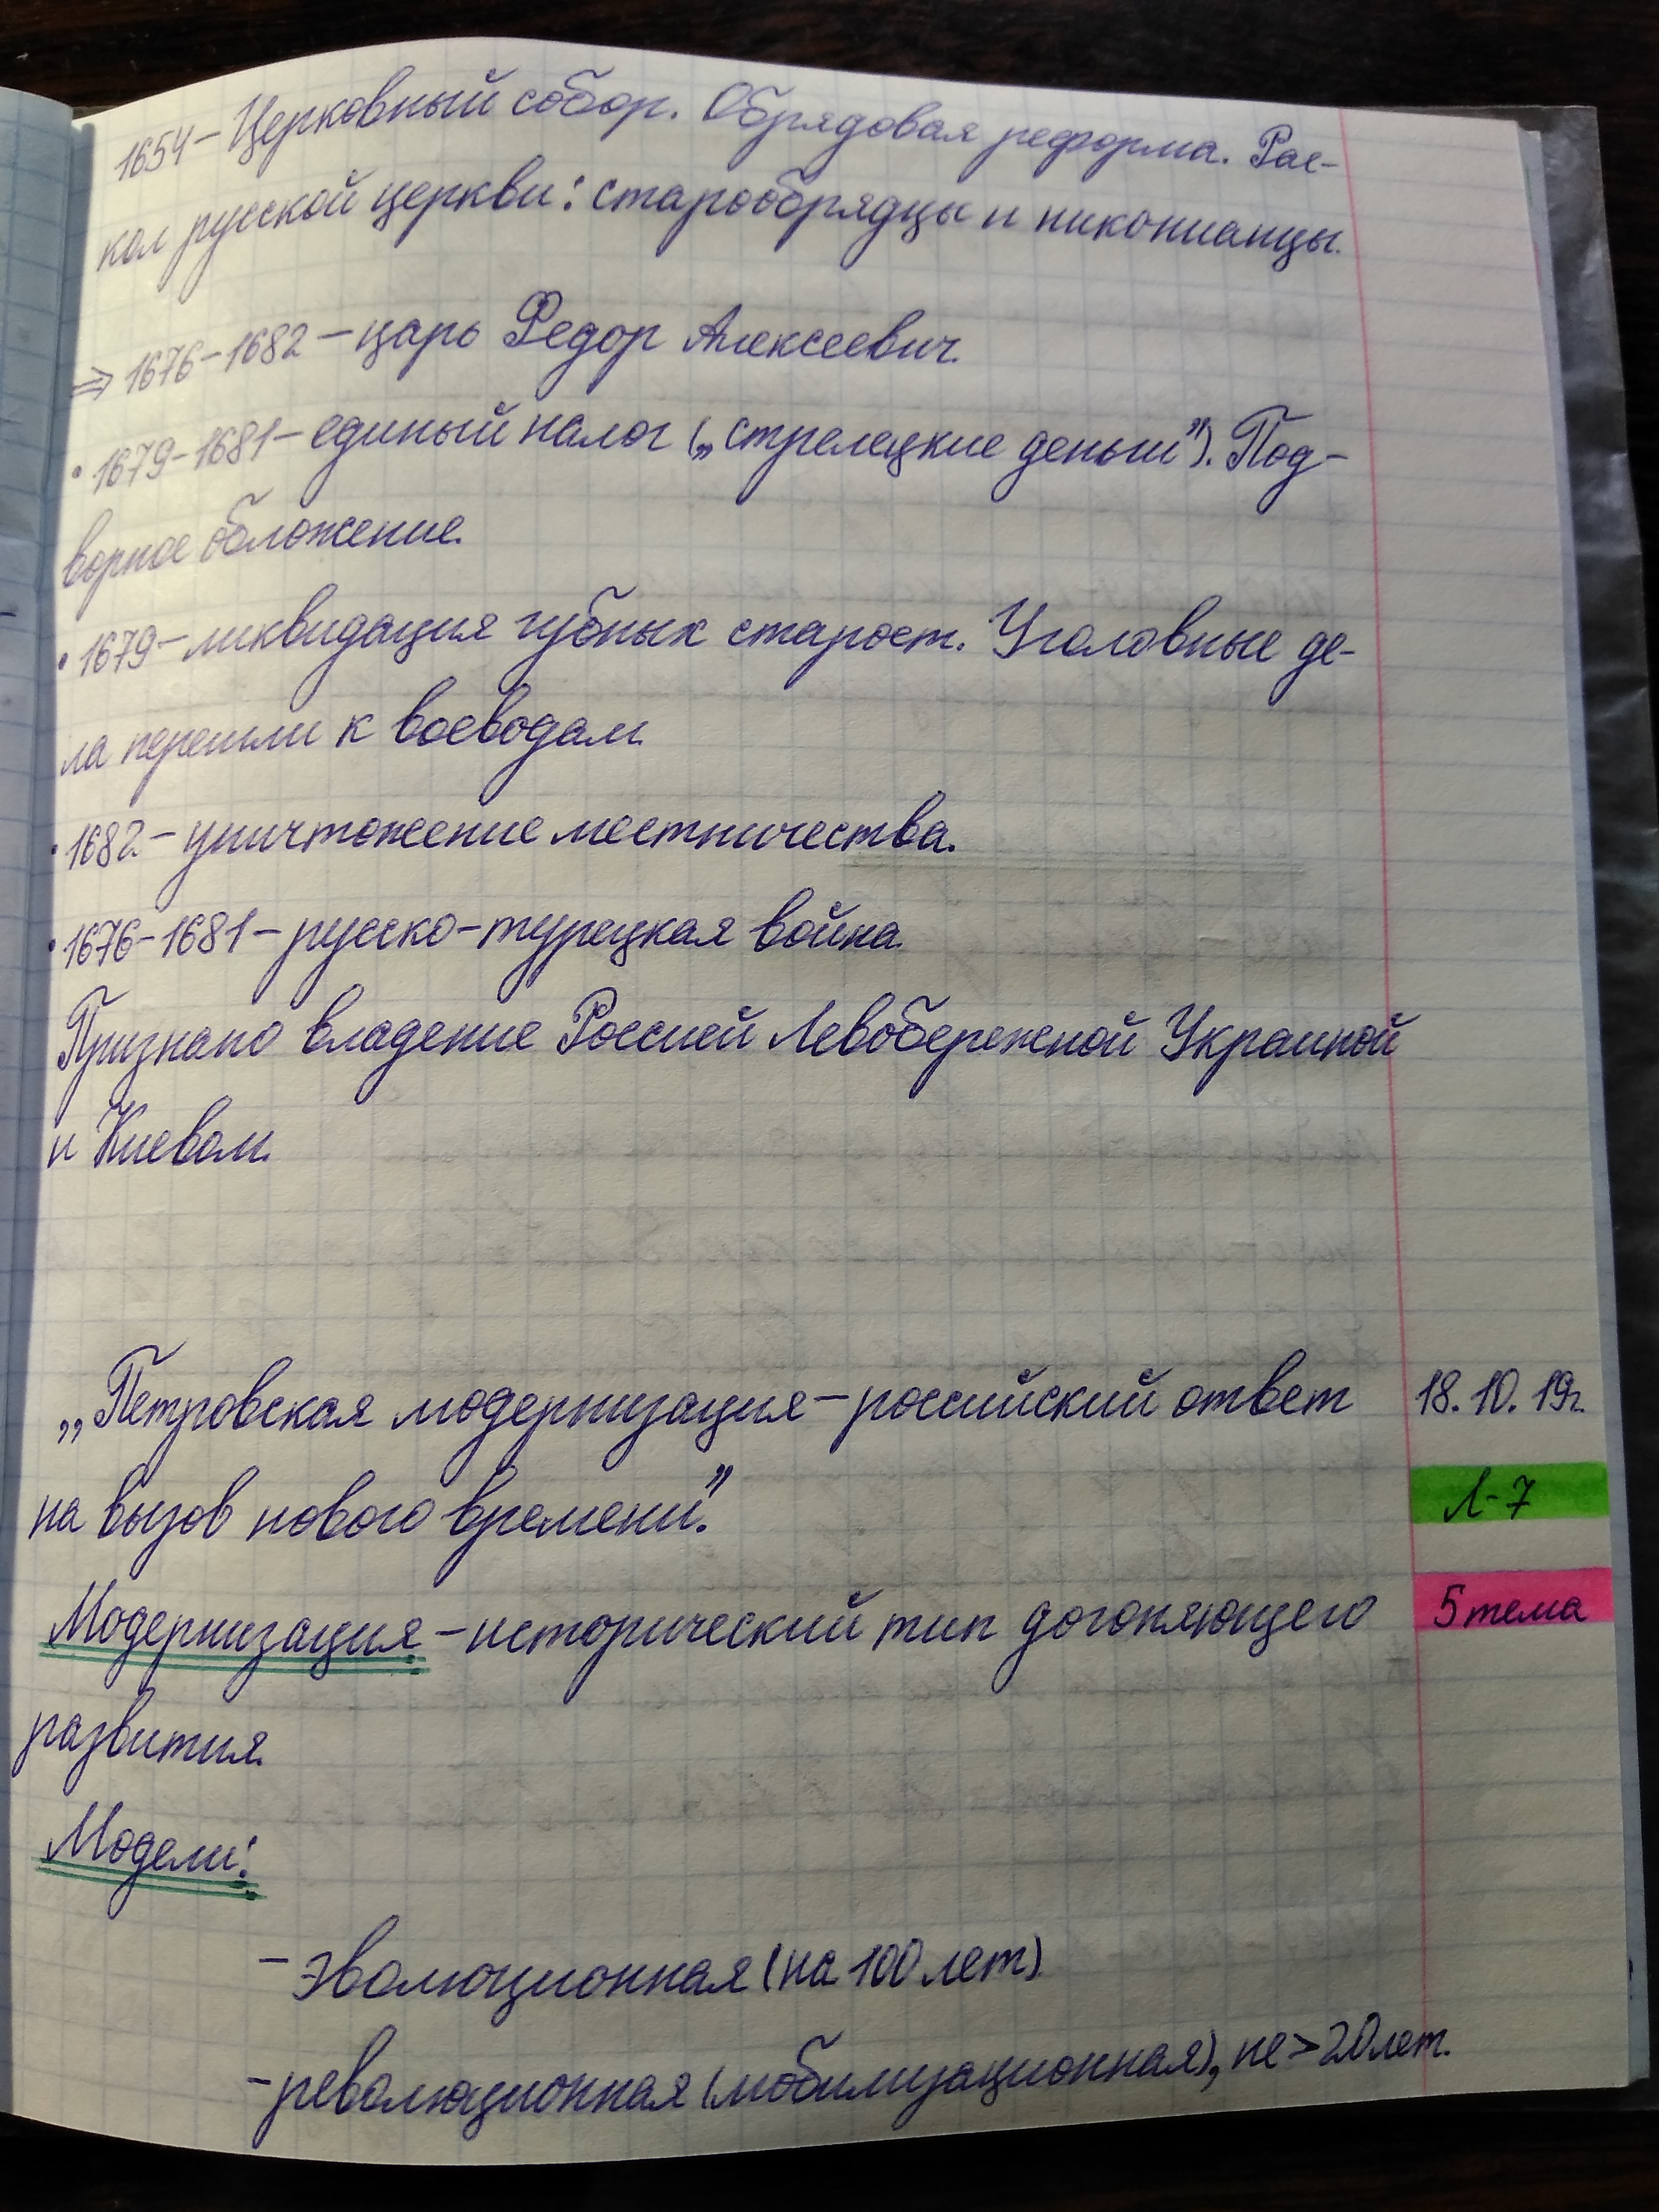 1654 – Церковный собор. Обрядовая реформа. Рас-
кол русской церкви: старообрядцы и никонианцы.
⇒ 1676–1682 – царь Федор Алексеевич.
• 1679–1681 – единый налог („стрелецкие деньги”). Под-
ворное обложение.
• 1679 – ликвидация губных старост. Уголовные де-
ла перешли к воеводам.
• 1682 – уничтожение местничества.
• 1676–1681 – русско-турецкая война.
Признано владение Россией Левобережной Украиной
и Киевом.
„Петровская модернизация – российский ответ 18.10.19г.
на вызов нового времени.”
Л-7
Модернизация – исторический тип догоняющего 5 тема
развития.
Модели:
– эволюционная (на 100 лет)
– революционная (мобилизационная), не > 20 лет.